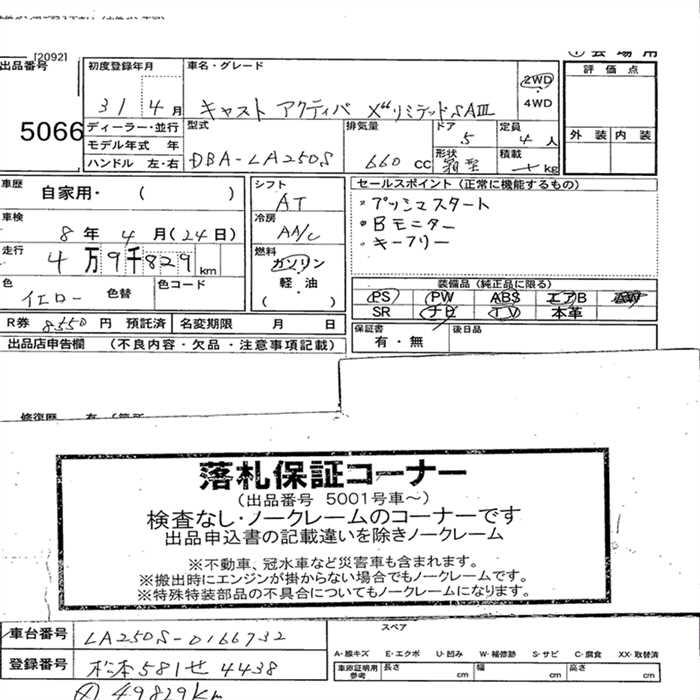 [2092]
① 会場用
出品番号
5066
初度登録年月
31 4 月
車名・グレード
キャスト アクティバ X"リミテッドSAⅢ
2WD
4WD
評価点
外装 内装
ディーラー・並行
モデル年式 年
ハンドル 左・右
型式
DBA-LA250S
排気量
660 CC
ドア
5
定員
4 人
形状
箱型
積載
kg
車歴
自家用・( )
車検
8 年 4 月(24日)
走行
4万9千829 km
色
イエロー 色替
色コード
シフト
AT
冷房
AA/C
燃料
ガソリン
軽・油
( )
セールスポイント(正常に機能するもの)
・プッシュスタート
・Bモニター
・キーフリー
装備品(純正品に限る)
PS PW ABS エアB AW
SR ナビ TV 本革
R券 8550 円 預託済
名変期限 月 日
保証書
有・無
後日品
出品店申告欄 (不良内容・欠品・注意事項記載)
修復歴 有
落札保証コーナー
(出品番号 5001号車~)
検査なし・ノークレームのコーナーです
出品申込書の記載違いを除きノークレーム
※不動車、冠水車など災害車も含まれます。
※搬出時にエンジンが掛からない場合でもノークレームです。
※特殊特装部品の不具合についてもノークレームになります。
車台番号 LA250S-0166732
登録番号 松本581せ4438
スペア
A-線キズ E-エクボ U-凹み W-補修跡 S-サビ C-腐食 XX-取替済
車庫証明用参考 長さ cm 幅 cm 高さ cm
49829Km